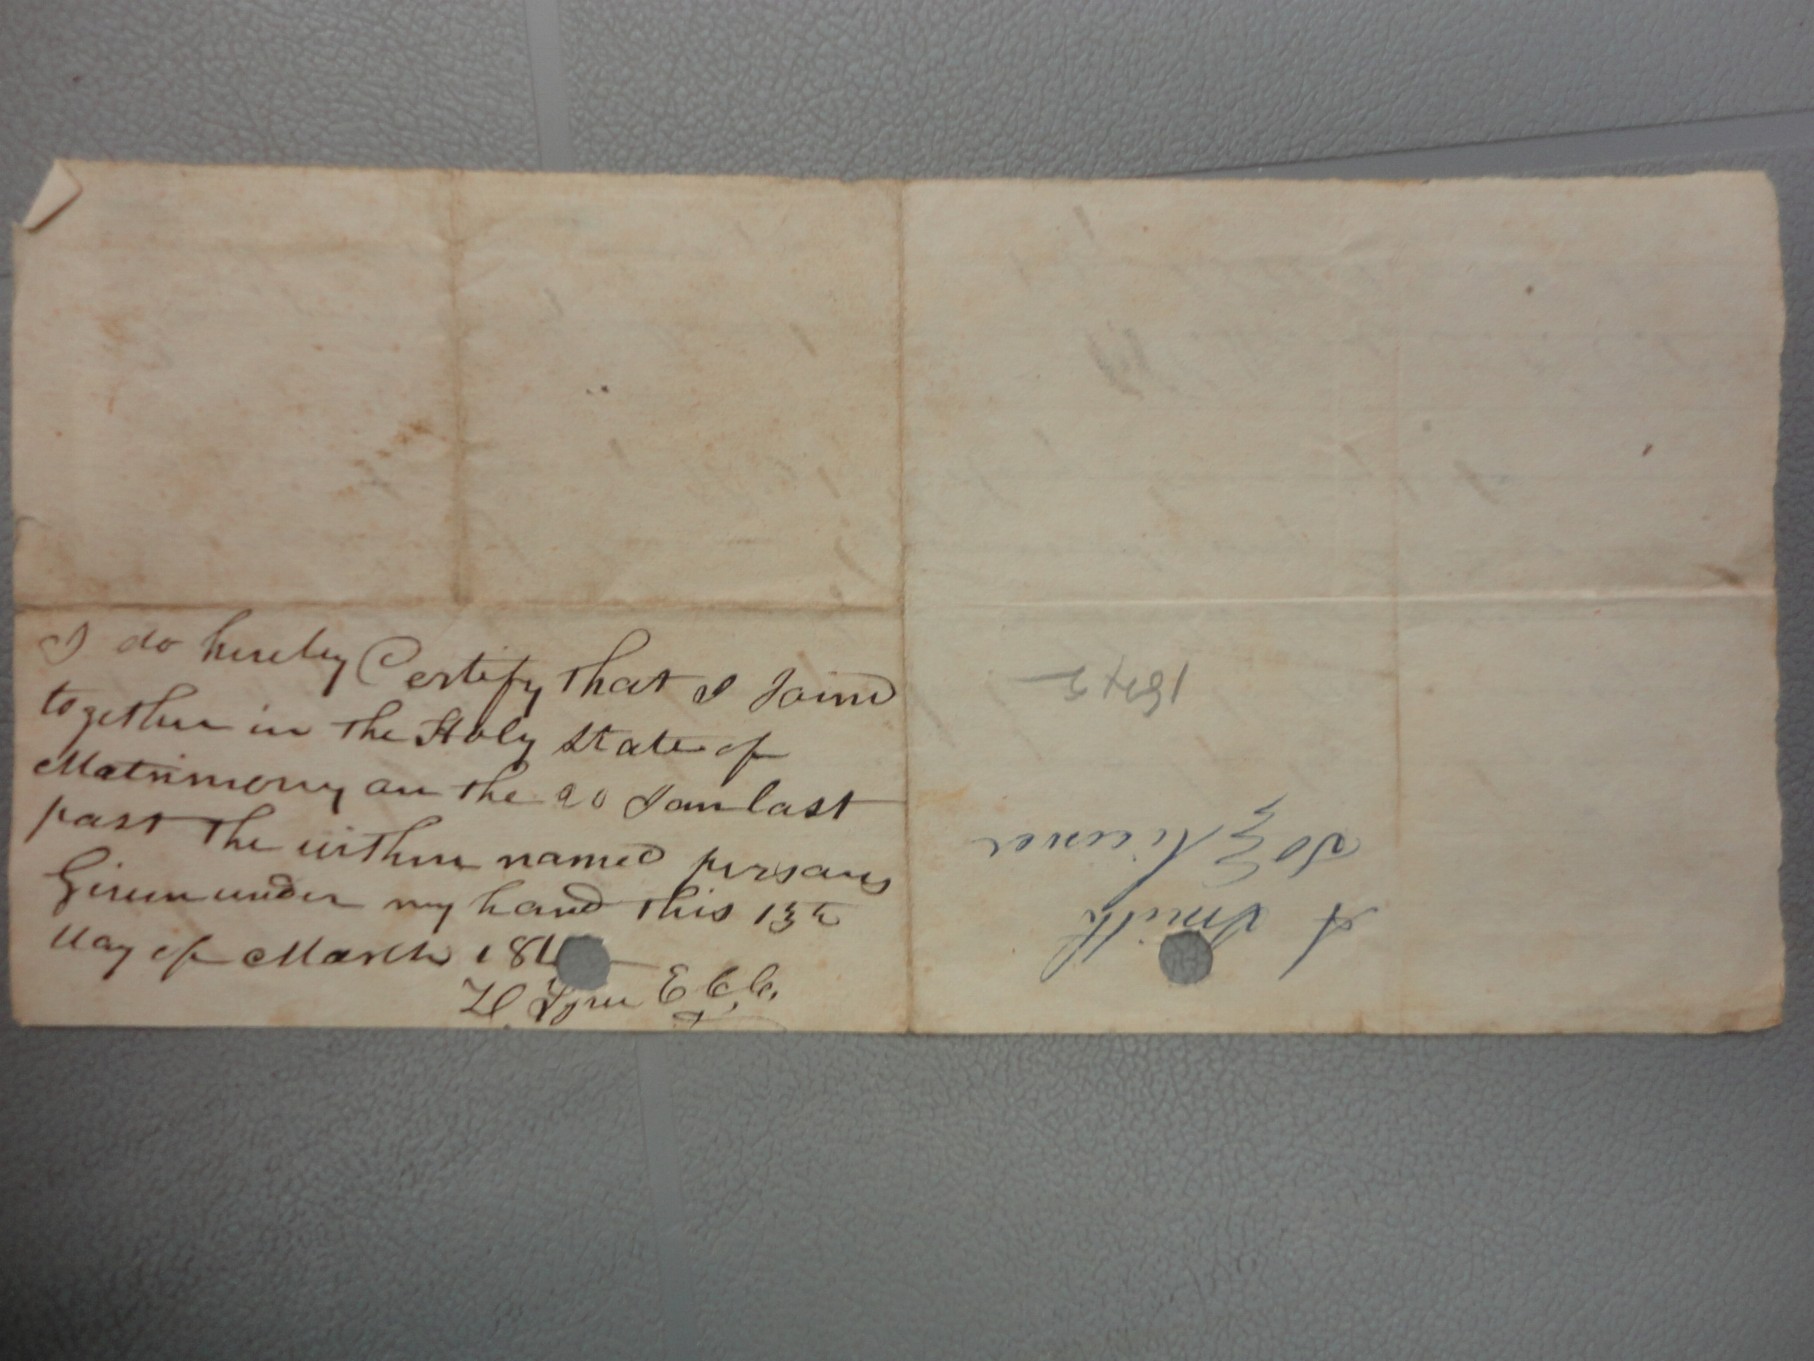 I do hereby Certify that I Joind
together in the Holy State of
Matrimony on the 20 Jan last
past the within named persons
Given under my hand this 13th
day of March 184
E. C. C.
1845
To License
A Smith